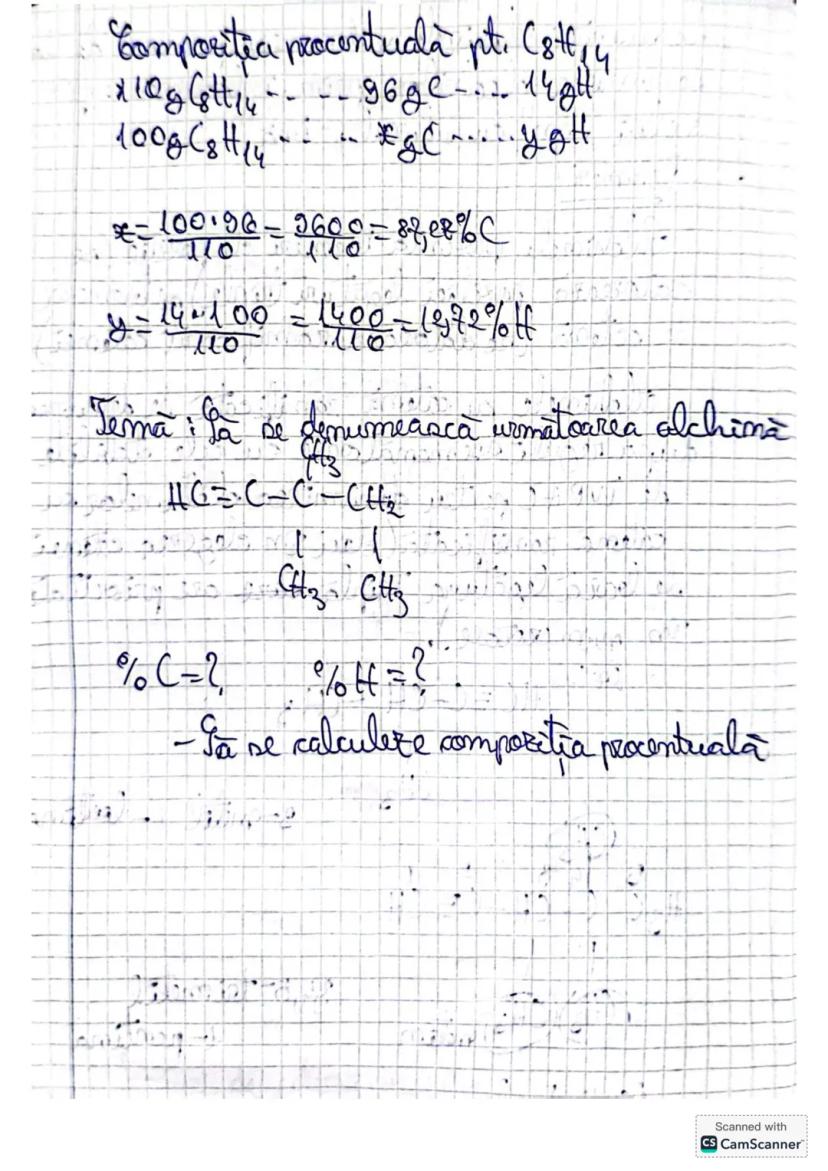 Compoziția procentuală pt. C8H14
110g C8H14 ..... 96gC .... 14gH
100g C8H14 ..... xgC ..... ygH
x = 100·96/110 = 9600/110 = 87,27%C
y = 14·100/110 = 1400/110 = 12,72%H
Temă: Să se denumească următoarea alchină
CH3
HC≡C-C-CH2
| |
CH3 CH3
%C=? %H=?
- Să se calculeze compoziția procentuală
Scanned with
CS CamScanner